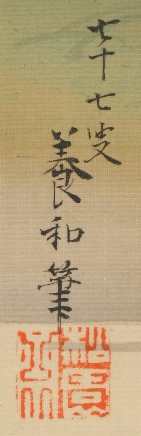 七十七叟
養和筆